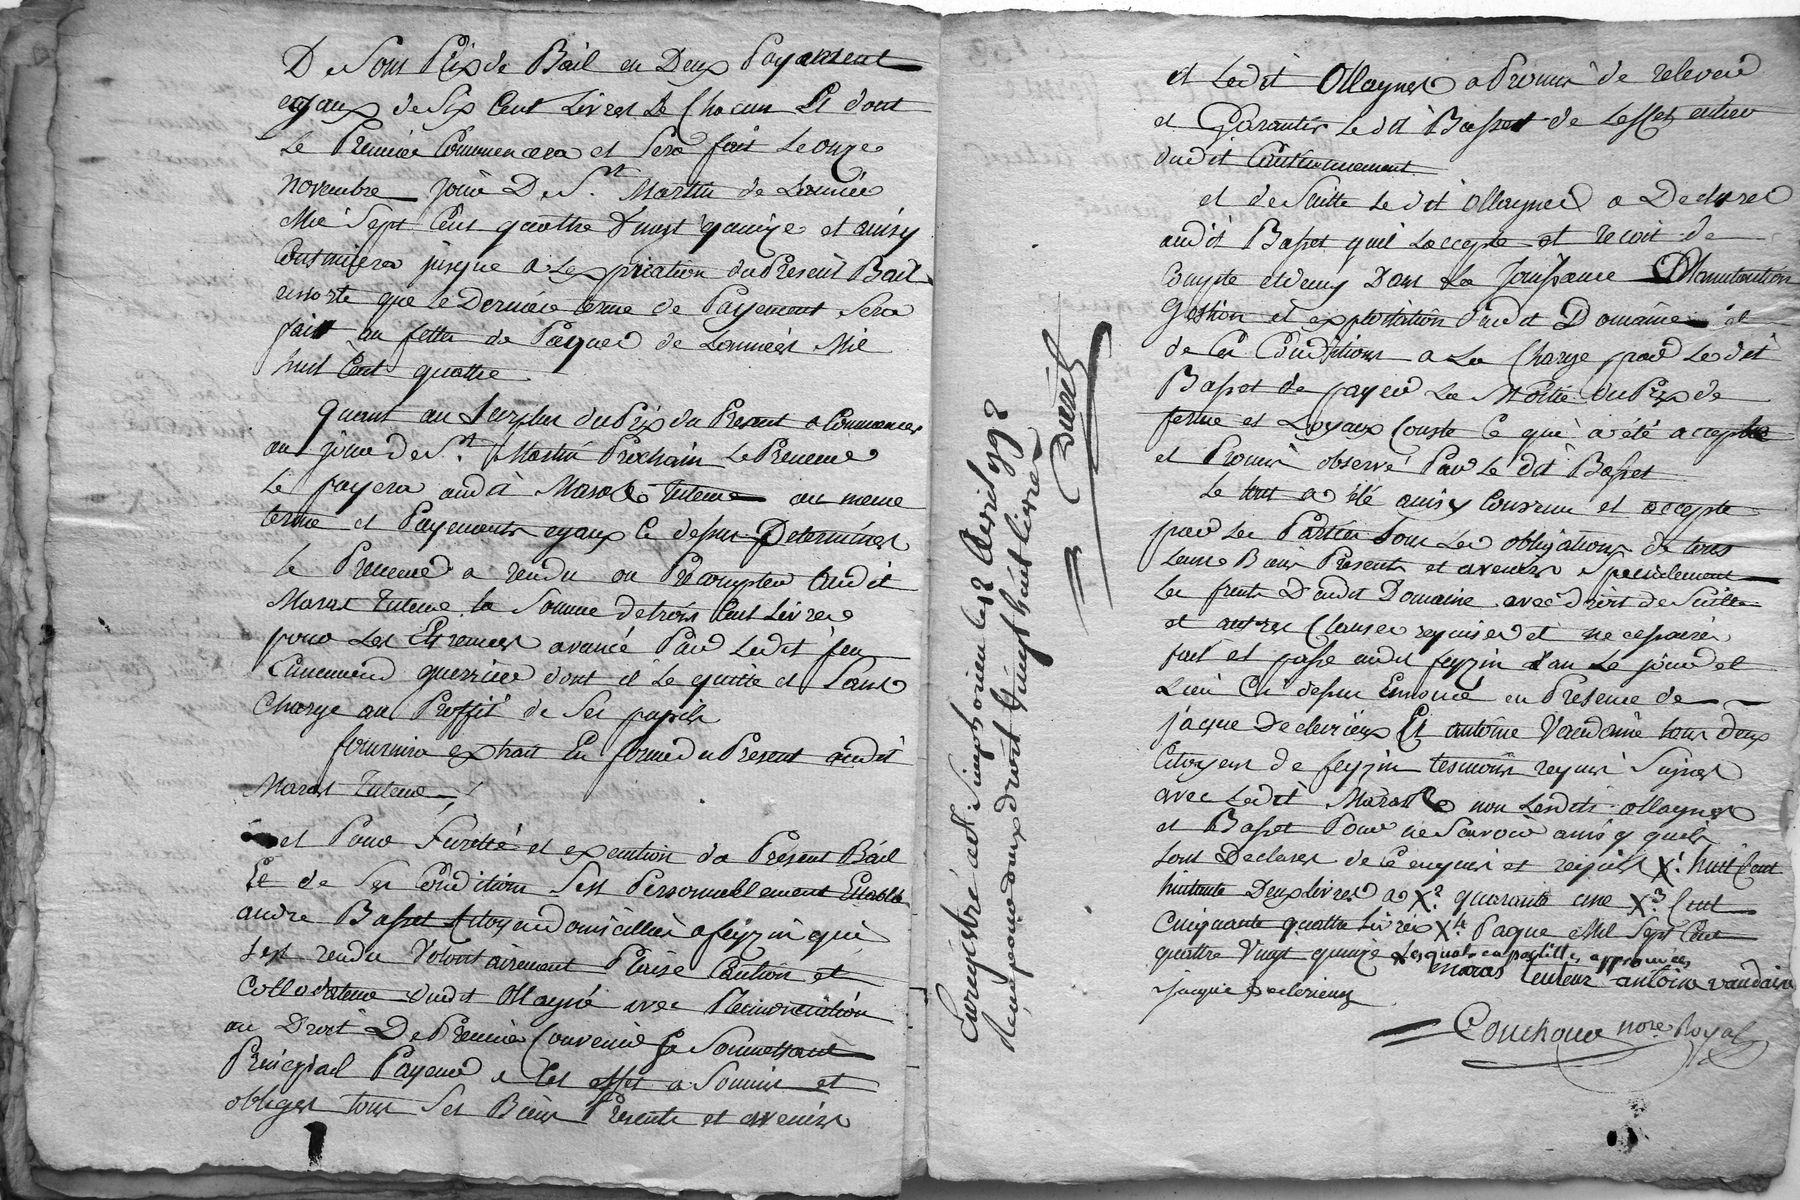 De Son Prix de Bail en Deux Payement
egaux de Six Cent Livres Le Chacun Et dont
Le Premier Commencera et Sera fait Le onze
novembre jour De St. Martin de Lannée
Mil Sept Cent quattre Vingt quinze et ainsy
Continuera jusque a Lexpiration du Présent Bail
ensorte que le Dernier terme de Payement Sera
fait au fettes de Paques de Lannées Mil
huit Cent quattre
quant au Surplus du Prix du Present a Commencer
au jour de St. Martin Prochain Le Preneur
Le payera audit Maras Tuteur au meme
terme et Payements egaux Cy dessus Determinés
Le Preneur a rendu ou Precompter audit
Maras Tuteur la Somme de trois Cent Livres
pour Les Etrennes avancé Par Ledit feu
guerrier dont il Le quitte et Sans
Charge au Proffit de Ses pupils
fournira extrait En forme du Present audit
Maras Tuteur
et Pour Suretté et execution du Présent Bail
Et de Ses Condition Sest Personnellement Etablis
andre Basset Citoyen domicillier a feyzin qui
Sest rendu Volontairement Plaise Caution et
Collodateur dudit Ollagné avec Renonciation
au Droit De Premier Convenir Se Soumettant
Principal Payeur a Cet effet a Soumis et
obliger tous Ses Biens Presents et avenirs
et Ledit Ollagner a Promis de relever
et Garantir Ledit Basset de Leffet entier
dudit Cautionnement
et de Suitte Ledit Ollagner a Declarer
audit Basset quil Laccepte et recoit de
Compte et demy Dans La Jouissance Manutantion
Gestion et exploitation dudit Domaine et
de Ces Conditions a La Charge par Ledit
Basset de payer La Moitié du Prix de
ferme et Loyaux Couste Ce qui a été accepter
et Promis observé Par Le dit Basset
Le tout a été ainsy Convenu et accepte
par Les Parties Sous Les obligations de tous
Leurs Biens Presents et avenirs Specialement
Les fruits Dudit Domaine avec droit de Suitte
et autres Clauses requises et necessaires
fait et passé audit feyzin Lan Le jour et
Lieu Cy dessus Ennoncé en Presence de
jaque Declerieux Et antoine Vaudaine tous deux
Citoyens de feyzin tesmoins requis Signes
avec Ledit Maras non Lesdits ollagner
et Basset Pour ne Scavoir ainsy quils
sont Declarer de Ce enquis et requis X1 huit Cent
huitante Deux livres a X2 quarante une X3 Cent
Cinquante quattre Livres X4 Paque Mil Sept Cent
quattre Vingt quinze Lesquels apostilles approuvés
maras tuteur antoine vaudaine
jacque declerieux
Couchoux nore Royal
Enregistré a St Simphorien le 12 Avril 1792
Reçu pour deux droit Vingt huit livres
Burel